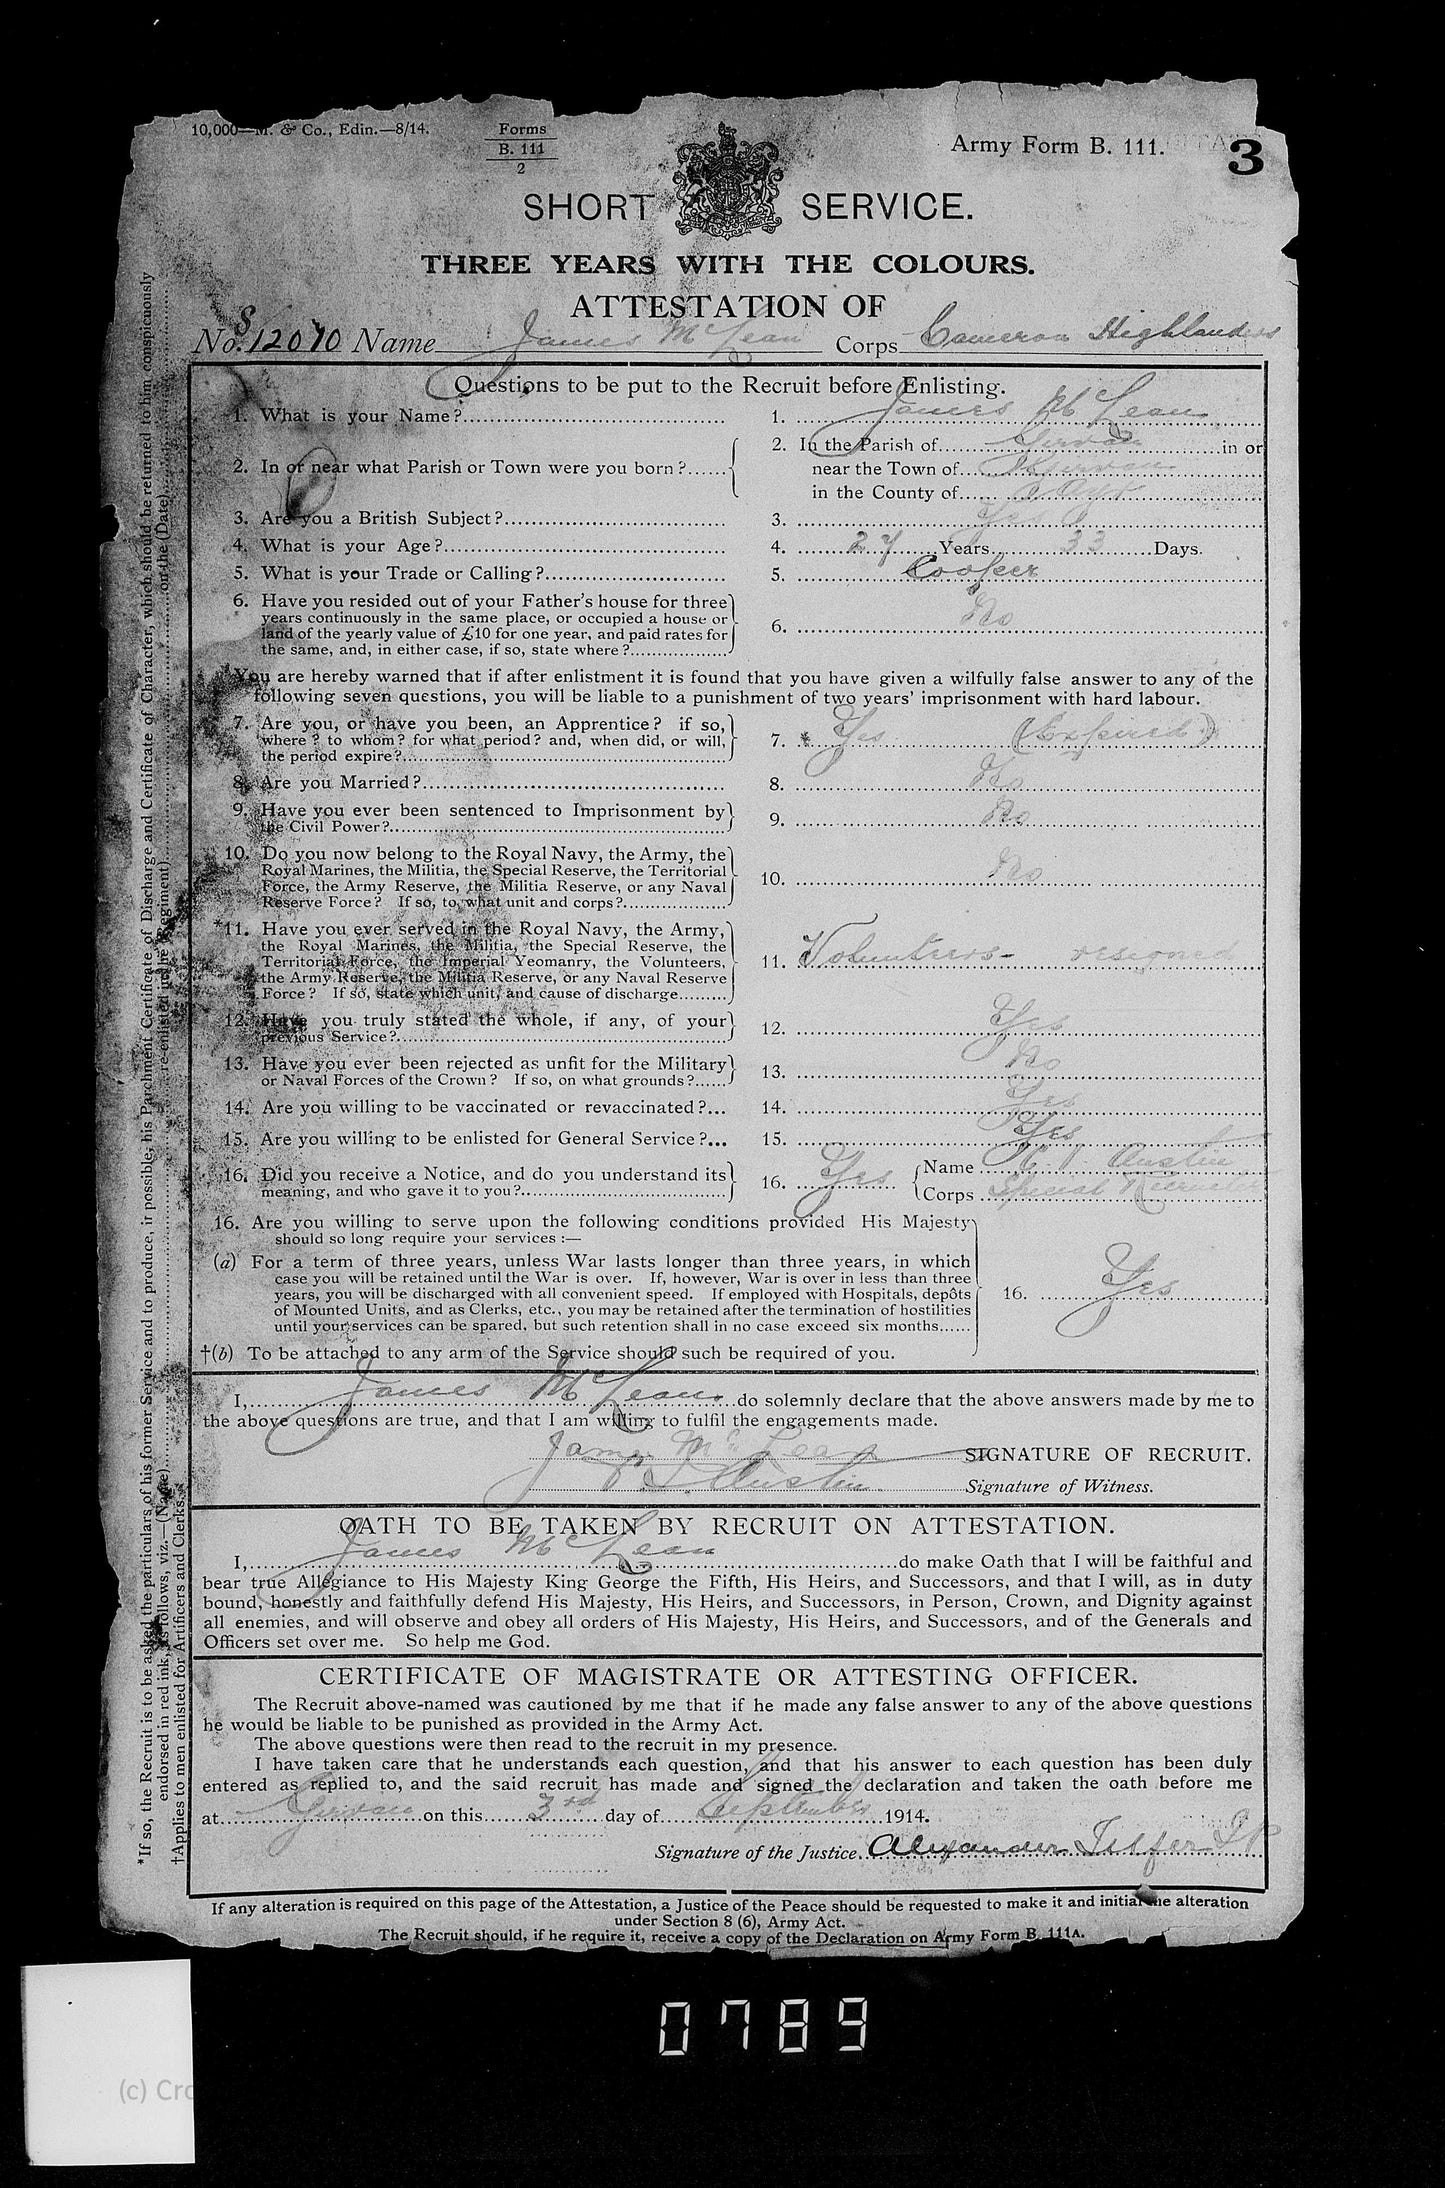 10,000—M. & Co., Edin.—8/14.
Forms
B. 111
2
Army Form B. 111.
3
SHORT SERVICE.
THREE YEARS WITH THE COLOURS.
ATTESTATION OF
No. S/12070 Name James McLean Corps Cameron Highlanders
Questions to be put to the Recruit before Enlisting.
1. What is your Name? 1. James McLean
2. In or near what Parish or Town were you born? 2. In the Parish of Girvan in or
near the Town of Girvan
in the County of Ayr
3. Are you a British Subject? 3. Yes
4. What is your Age? 4. 27 Years 33 Days.
5. What is your Trade or Calling? 5. Cooper
6. Have you resided out of your Father's house for three
years continuously in the same place, or occupied a house or
land of the yearly value of £10 for one year, and paid rates for
the same, and, in either case, if so, state where? 6. No
*You are hereby warned that if after enlistment it is found that you have given a wilfully false answer to any of the
following seven questions, you will be liable to a punishment of two years' imprisonment with hard labour.
7. Are you, or have you been, an Apprentice? if so,
where? to whom? for what period? and, when did, or will,
the period expire? 7. * Yes (Expired)
8. Are you Married? 8. No
9. Have you ever been sentenced to Imprisonment by
the Civil Power? 9. No
10. Do you now belong to the Royal Navy, the Army, the
Royal Marines, the Militia, the Special Reserve, the Territorial
Force, the Army Reserve, the Militia Reserve, or any Naval
Reserve Force? If so, to what unit and corps? 10. No
*11. Have you ever served in the Royal Navy, the Army,
the Royal Marines, the Militia, the Special Reserve, the
Territorial Force, the Imperial Yeomanry, the Volunteers,
the Army Reserve, the Militia Reserve, or any Naval Reserve
Force? If so, state which unit, and cause of discharge 11. Volunteers - resigned
12. Have you truly stated the whole, if any, of your
previous Service? 12. Yes
13. Have you ever been rejected as unfit for the Military
or Naval Forces of the Crown? If so, on what grounds? 13. No
14. Are you willing to be vaccinated or revaccinated? 14. Yes
15. Are you willing to be enlisted for General Service? 15. Yes
16. Did you receive a Notice, and do you understand its
meaning, and who gave it to you? 16. Yes Name Austin
Corps Special Recruiter
16. Are you willing to serve upon the following conditions provided His Majesty
should so long require your services :—
(a) For a term of three years, unless War lasts longer than three years, in which
case you will be retained until the War is over. If, however, War is over in less than three
years, you will be discharged with all convenient speed. If employed with Hospitals, depôts
of Mounted Units, and as Clerks, etc., you may be retained after the termination of hostilities
until your services can be spared, but such retention shall in no case exceed six months
16. Yes
†(b) To be attached to any arm of the Service should such be required of you.
I, James McLean do solemnly declare that the above answers made by me to
the above questions are true, and that I am willing to fulfil the engagements made.
James McLean SIGNATURE OF RECRUIT.
Austin Signature of Witness.
OATH TO BE TAKEN BY RECRUIT ON ATTESTATION.
I, James McLean do make Oath that I will be faithful and
bear true Allegiance to His Majesty King George the Fifth, His Heirs, and Successors, and that I will, as in duty
bound, honestly and faithfully defend His Majesty, His Heirs, and Successors, in Person, Crown, and Dignity against
all enemies, and will observe and obey all orders of His Majesty, His Heirs, and Successors, and of the Generals and
Officers set over me. So help me God.
CERTIFICATE OF MAGISTRATE OR ATTESTING OFFICER.
The Recruit above-named was cautioned by me that if he made any false answer to any of the above questions
he would be liable to be punished as provided in the Army Act.
The above questions were then read to the recruit in my presence.
I have taken care that he understands each question, and that his answer to each question has been duly
entered as replied to, and the said recruit has made and signed the declaration and taken the oath before me
at Girvan on this 3rd day of September 1914.
Signature of the Justice Alexander Telfer JP
If any alteration is required on this page of the Attestation, a Justice of the Peace should be requested to make it and initial the alteration
under Section 8 (6), Army Act.
The Recruit should, if he require it, receive a copy of the Declaration on Army Form B. 111A.
*If so, the Recruit is to be asked the particulars of his former Service and to produce, if possible, his Parchment Certificate of Discharge and Certificate of Character, which should be returned to him conspicuously
endorsed in red ink, as follows, viz.—(Name) re-enlisted in the (Regiment) on the (Date)
†Applies to men enlisted for Artificers and Clerks.
0789
(c) Cro